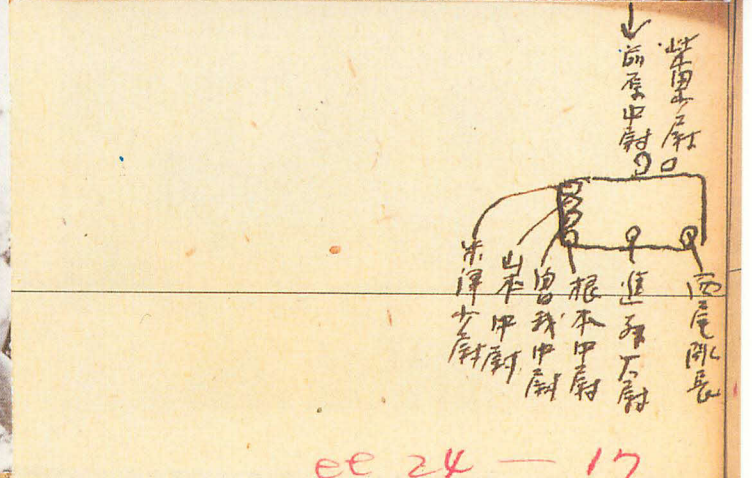 柴田少尉
前原中尉
西尾隊長
進藤大尉
根本中尉
曽我中尉
山本中尉
米澤少尉
24—17